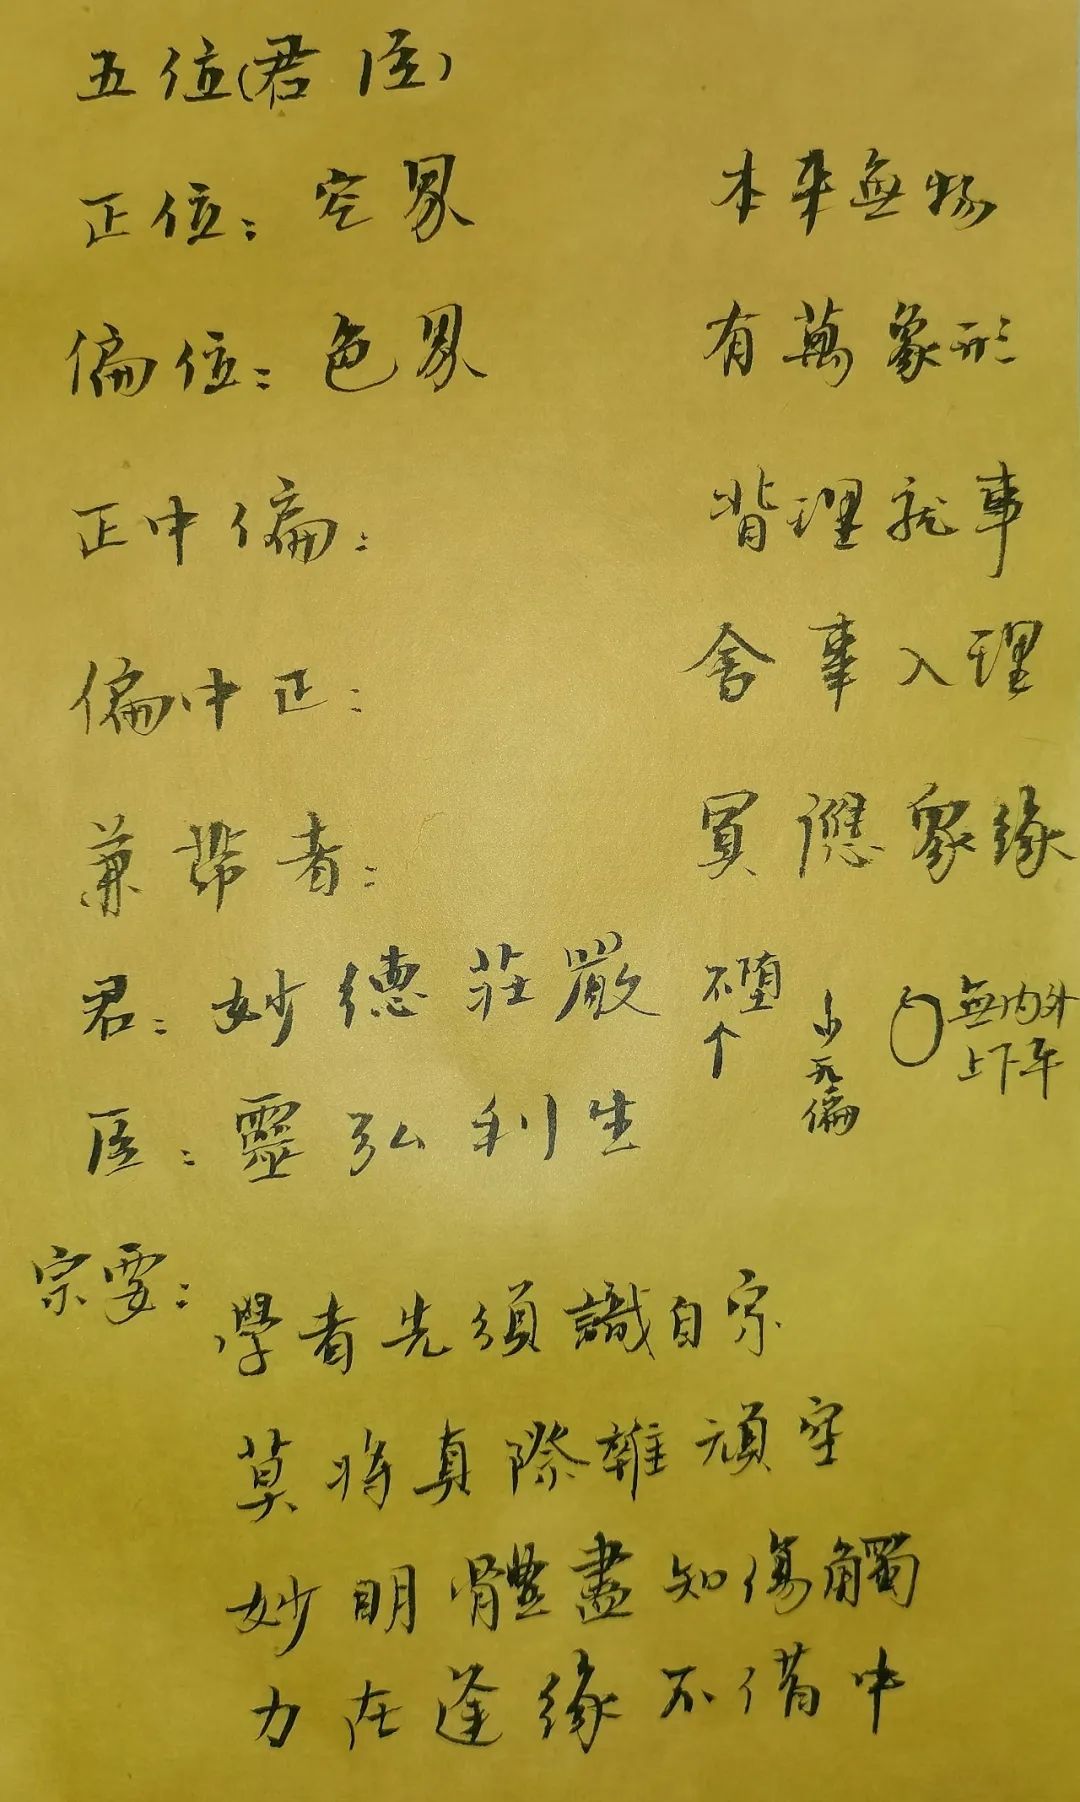 五位(君臣)
正位：空界 本來無物
偏位：色界 有萬象形
正中偏： 背理就事
舍事入理
偏中正：
兼帶者： 冥應衆緣
君：妙德莊嚴 不墮
↑
無內外
上下平
偏
臣：靈弘利生
宗要：
學者先須識自宗
莫將真際雜頑空
妙明體盡知傷觸
力在逢緣不借中